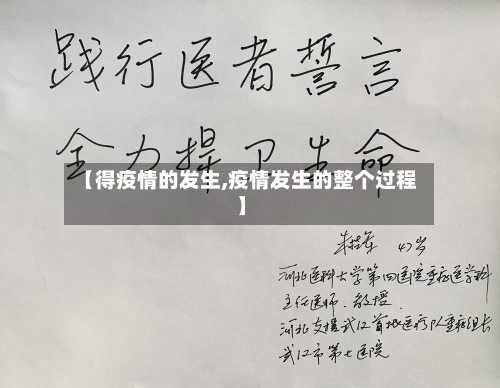 践行医者誓言
全力捍卫生命
【得疫情的发生,疫情发生的整个过程
】
47岁
河北医科大学第四医院重症医学科
主任医师、教授
河北支援武汉首批医疗队重症组长
武汉市第七医院